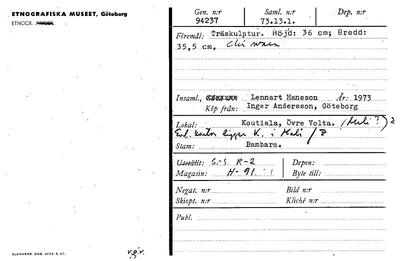 ETNOGRAFISKA MUSEET, Göteborg
ETNOGR.
Gen. n:r Saml. n:r Dep. n:r
94237 73.13.1.
Föremål: Träskulptur. Höjd: 36 cm; Bredd:
35,5 cm.
Insaml., Lennart Haneson År: 1973
Köp från: Inger Andersson, Göteborg
Lokal: Koutiala, Övre Volta. (Mali?)
Enl. kartor ligger K. i Mali /?
Stam: Bambara.
Utställt: G.S. R-2 Depon:
Magasin: H-91 Byte till:
Negat. n:r Bild n:r
Skiopt. n:r Kliché n:r
Publ.
v.g.v.